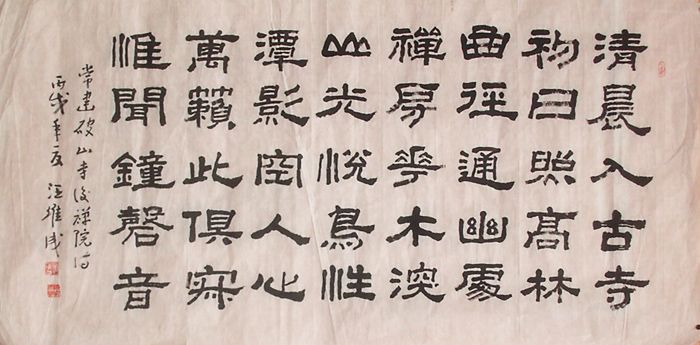 清晨入古寺
初日照高林
曲徑通幽處
禪房花木深
山光悅鳥性
潭影空人心
萬籟此俱寂
惟聞鐘磬音
常建破山寺後禪院詩
丙戌年夏